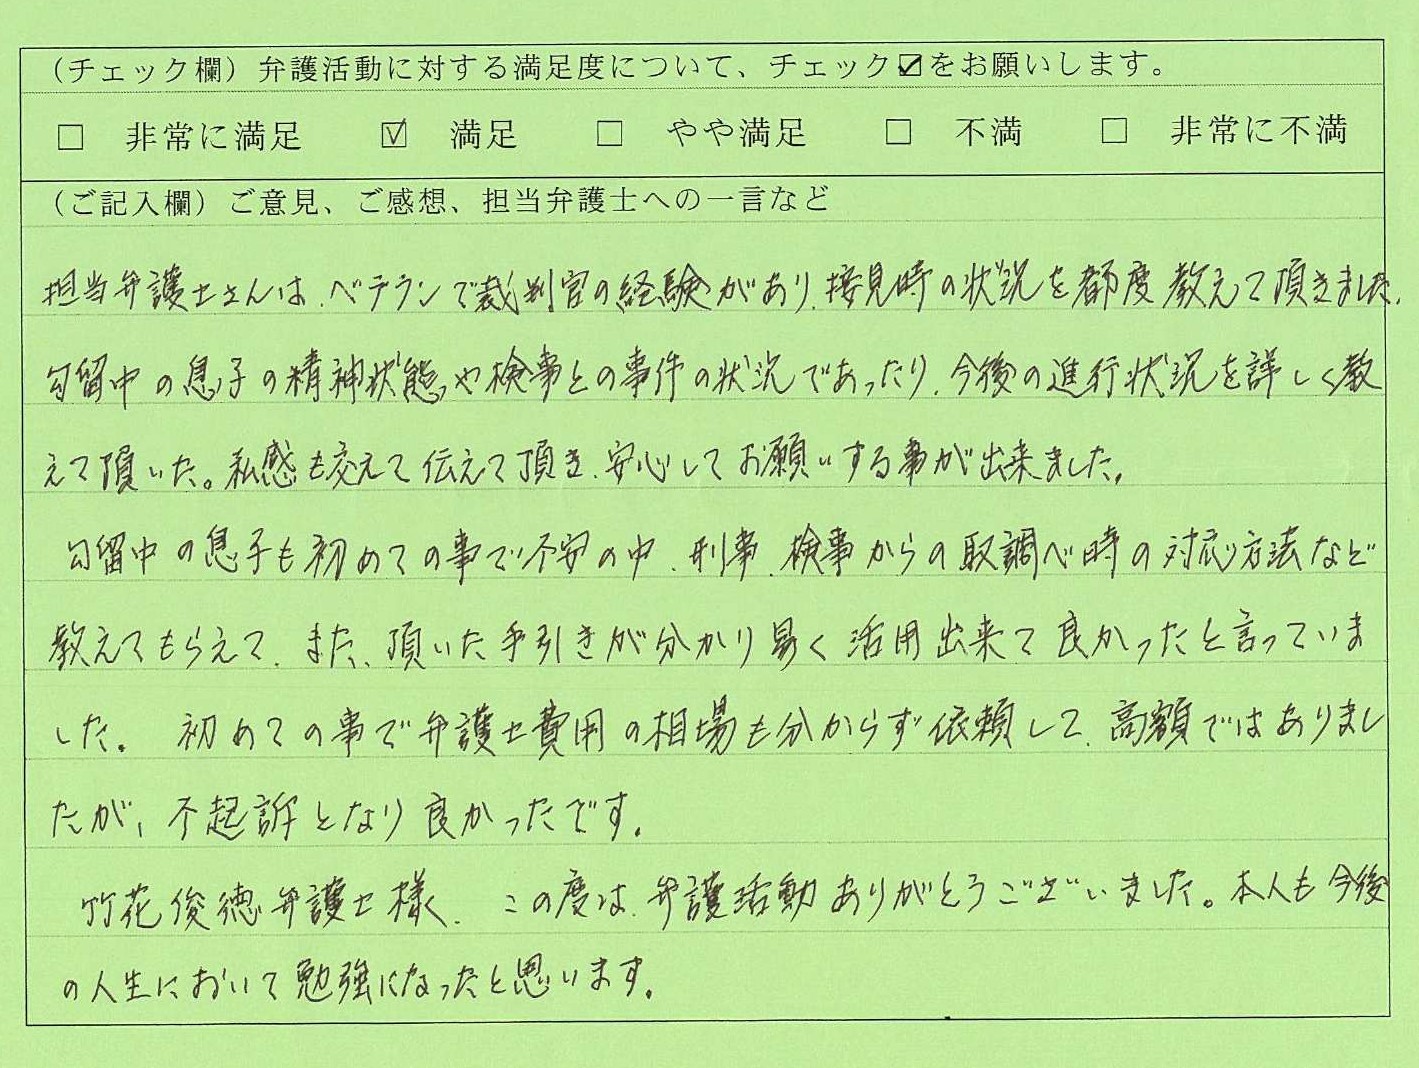 （チェック欄）弁護活動に対する満足度について、チェック☑をお願いします。
□ 非常に満足 ☑ 満足 □ やや満足 □ 不満 □ 非常に不満
（ご記入欄）ご意見、ご感想、担当弁護士への一言など
担当弁護士さんは、ベテランで裁判官の経験があり、接見時の状況を都度教えて頂きました。
勾留中の息子の精神状態や検事との事件の状況であったり、今後の進行状況を詳しく教
えて頂いた。私感も交えて伝えて頂き、安心してお願いする事が出来ました。
勾留中の息子も初めての事で不安の中、刑事、検事からの取調べ時の対応方法など
教えてもらえて、また、頂いた手引きが分かり易く活用出来て良かったと言っていま
した。 初めての事で弁護士費用の相場も分からず依頼して、高額ではありまし
たが、不起訴となり良かったです。
竹花俊徳弁護士様、この度は、弁護活動ありがとうございました。本人も今後
の人生において勉強になったと思います。